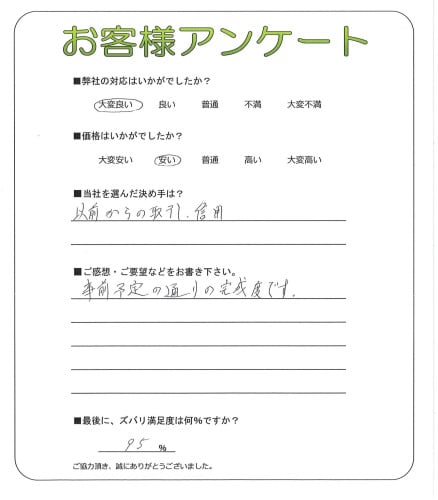 お客様アンケート
■弊社の対応はいかがでしたか？
大変良い 良い 普通 不満 大変不満
■価格はいかがでしたか？
大変安い 安い 普通 高い 大変高い
■当社を選んだ決め手は？
以前からの取引、信用
■ご感想・ご要望などをお書き下さい。
事前予定の通りの完成度です．
■最後に、ズバリ満足度は何%ですか？
95 %
ご協力頂き、誠にありがとうございました。